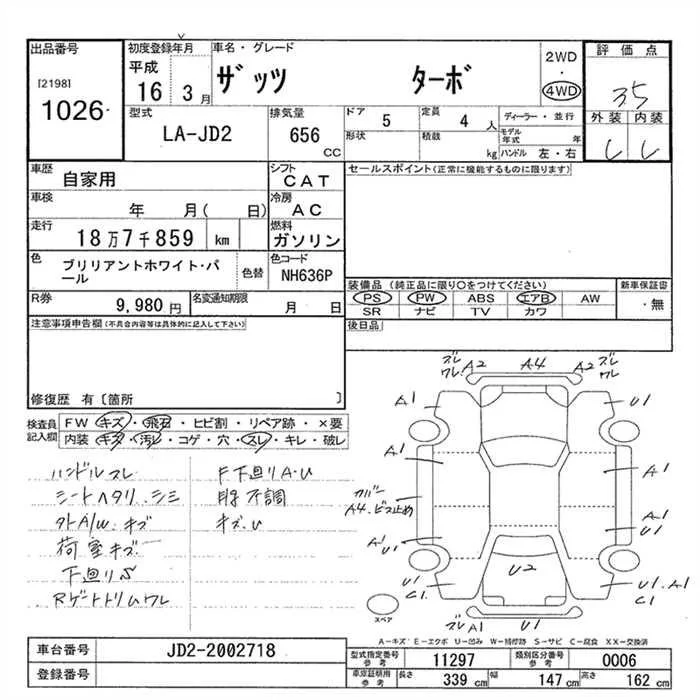 出品番号
[2198]
1026
初度登録年月
平成
16 3月
車名・グレード
ザッツ ターボ
2WD
・
4WD
評価点
3.5
外装 内装
型式
LA-JD2
排気量
656
CC
ドア 5
定員 4 人
形状
積載 kg
ディーラー・並行
モデル年式 年
ハンドル 左・右
車歴
自家用
シフト
CAT
車検
年 月( 日)
冷房
AC
走行
18万7千859 km
燃料
ガソリン
色
ブリリアントホワイト・パール
色替
色コード
NH636P
R券
9,980円
名変通知期限
月 日
セールスポイント(正常に機能するものに限ります)
装備品(純正品に限り○をつけてください)
PS PW ABS エアB AW
SR ナビ TV カワ
新車保証書
・無
後日品
注意事項申告欄(不具合内容等は具体的に記入して下さい)
修復歴 有〔箇所 〕
検査員記入欄
FW キズ・飛石・ヒビ割・リペア跡・×要
内装 キズ・汚レ・コゲ・穴・スレ・キレ・破レ
ハンドルスレ
シートヘタリ、シミ
外A/W キズ
荷室キズ
下廻りS
Rゲートトリムワレ
F下廻りA・U
キズ、U
ズレ
ワレ A2
A4
A2 ズレ
ワレ
A1
U1
A1
A1
カバー
A4、ビス止め
A1
U1
A1
U1
U1
C1
U2
U1、A1
C1
ズレ A1
U1
スペア
A-キズ E-エクボ U-凹み W-補修跡 S-サビ C-腐食 XX-交換済
車台番号
JD2-2002718
登録番号
型式指定番号
参考
11297
類別区分番号
参考
0006
車庫証明用
参考
長さ 339 cm
幅 147 cm
高さ 162 cm